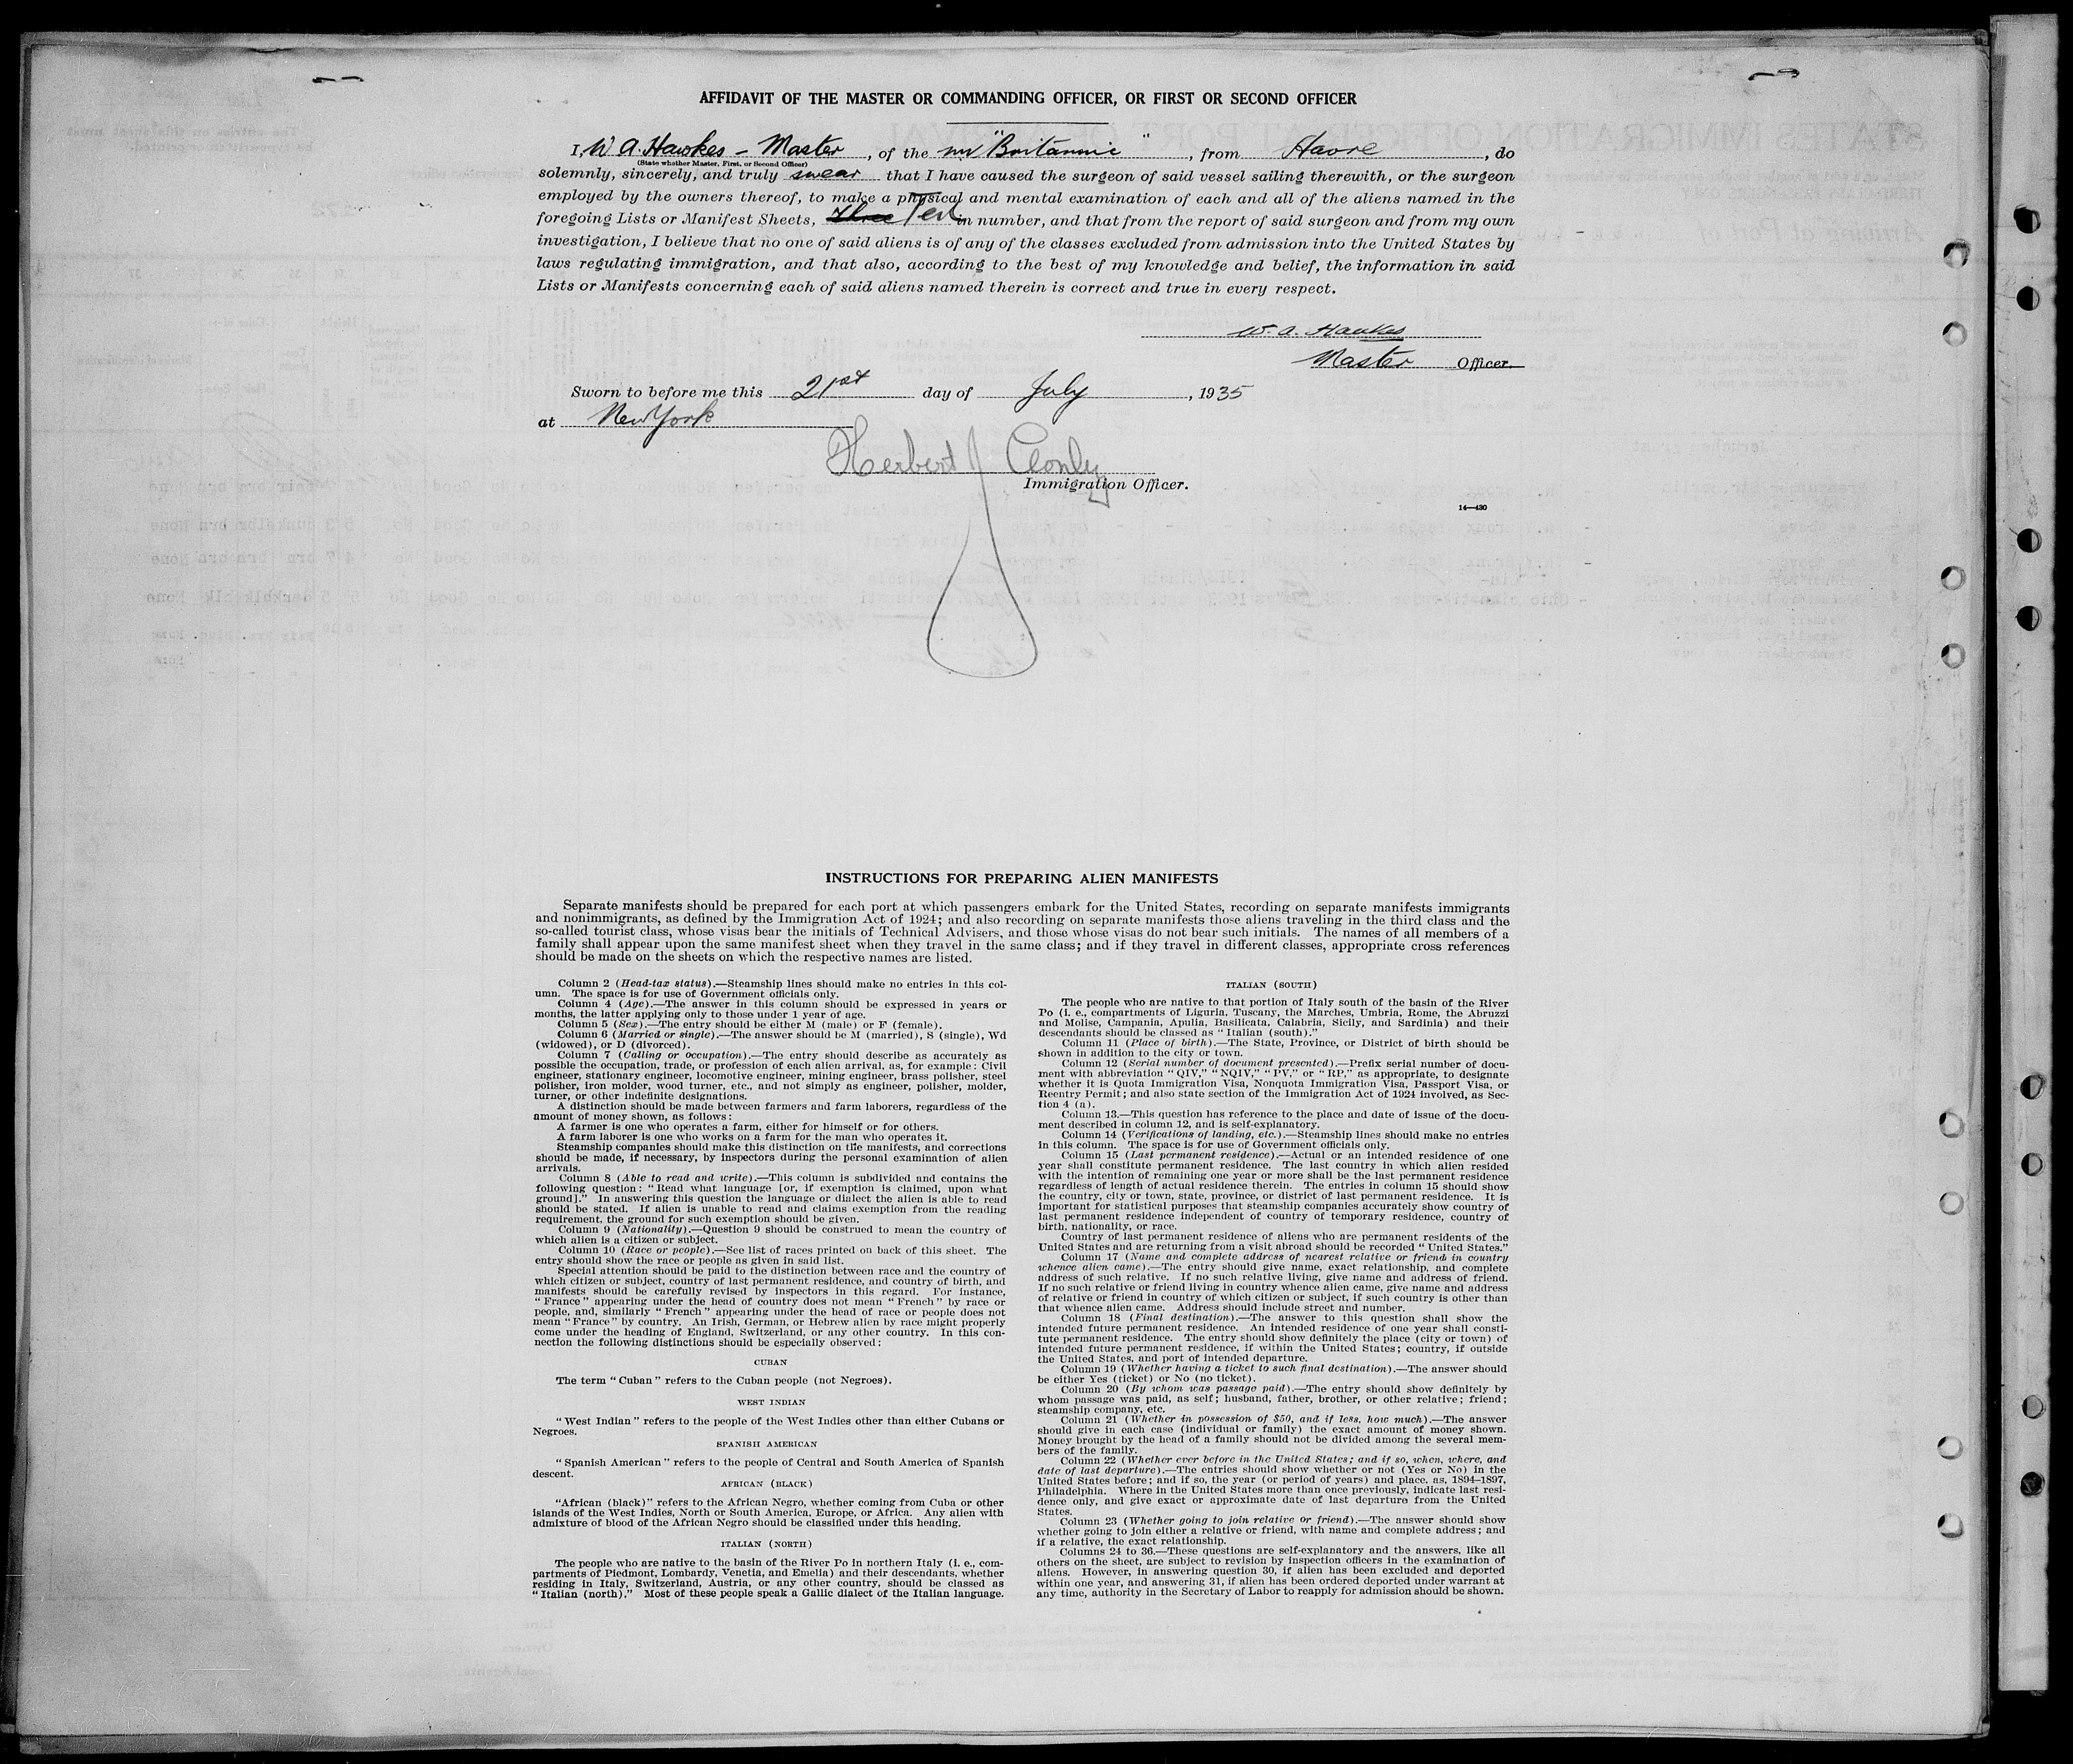 AFFIDAVIT OF THE MASTER OR COMMANDING OFFICER, OR FIRST OR SECOND OFFICER
I, W A. Hawkes - Master, of the mv "Britannic", from Havre, do
(State whether Master, First, or Second Officer)
solemnly, sincerely, and truly swear that I have caused the surgeon of said vessel sailing therewith, or the surgeon
employed by the owners thereof, to make a physical and mental examination of each and all of the aliens named in the
foregoing Lists or Manifest Sheets, three Ten in number, and that from the report of said surgeon and from my own
investigation, I believe that no one of said aliens is of any of the classes excluded from admission into the United States by
laws regulating immigration, and that also, according to the best of my knowledge and belief, the information in said
Lists or Manifests concerning each of said aliens named therein is correct and true in every respect.
W. A. Hawkes
Master Officer.
Sworn to before me this 21st day of July, 1935
at New York
Herbert J
Immigration Officer.
14—430
INSTRUCTIONS FOR PREPARING ALIEN MANIFESTS
Separate manifests should be prepared for each port at which passengers embark for the United States, recording on separate manifests immigrants
and nonimmigrants, as defined by the Immigration Act of 1924; and also recording on separate manifests those aliens traveling in the third class and the
so-called tourist class, whose visas bear the initials of Technical Advisers, and those whose visas do not bear such initials. The names of all members of a
family shall appear upon the same manifest sheet when they travel in the same class; and if they travel in different classes, appropriate cross references
should be made on the sheets on which the respective names are listed.
Column 2 (Head-tax status).—Steamship lines should make no entries in this col-
umn. The space is for use of Government officials only.
Column 4 (Age).—The answer in this column should be expressed in years or
months, the latter applying only to those under 1 year of age.
Column 5 (Sex).—The entry should be either M (male) or F (female).
Column 6 (Married or single).—The answer should be M (married), S (single), Wd
(widowed), or D (divorced).
Column 7 (Calling or occupation).—The entry should describe as accurately as
possible the occupation, trade, or profession of each alien arrival, as, for example: Civil
engineer, stationary engineer, locomotive engineer, mining engineer, brass polisher, steel
polisher, iron molder, wood turner, etc., and not simply as engineer, polisher, molder,
turner, or other indefinite designations.
A distinction should be made between farmers and farm laborers, regardless of the
amount of money shown, as follows:
A farmer is one who operates a farm, either for himself or for others.
A farm laborer is one who works on a farm for the man who operates it.
Steamship companies should make this distinction on the manifests, and corrections
should be made, if necessary, by inspectors during the personal examination of alien
arrivals.
Column 8 (Able to read and write).—This column is subdivided and contains the
following question: "Read what language [or, if exemption is claimed, upon what
ground]." In answering this question the language or dialect the alien is able to read
should be stated. If alien is unable to read and claims exemption from the reading
requirement, the ground for such exemption should be given.
Column 9 (Nationality).—Question 9 should be construed to mean the country of
which alien is a citizen or subject.
Column 10 (Race or people).—See list of races printed on back of this sheet. The
entry should show the race or people as given in said list.
Special attention should be paid to the distinction between race and the country of
which citizen or subject, country of last permanent residence, and country of birth, and
manifests should be carefully revised by inspectors in this regard. For instance,
"France" appearing under the head of country does not mean "French" by race or
people, and, similarly "French" appearing under the head of race or people does not
mean "France" by country. An Irish, German, or Hebrew alien by race might properly
come under the heading of England, Switzerland, or any other country. In this con-
nection the following distinctions should be especially observed:
CUBAN
The term "Cuban" refers to the Cuban people (not Negroes).
WEST INDIAN
"West Indian" refers to the people of the West Indies other than either Cubans or
Negroes.
SPANISH AMERICAN
"Spanish American" refers to the people of Central and South America of Spanish
descent.
AFRICAN (BLACK)
"African (black)" refers to the African Negro, whether coming from Cuba or other
islands of the West Indies, North or South America, Europe, or Africa. Any alien with
admixture of blood of the African Negro should be classified under this heading.
ITALIAN (NORTH)
The people who are native to the basin of the River Po in northern Italy (i. e., com-
partments of Piedmont, Lombardy, Venetia, and Emelia) and their descendants, whether
residing in Italy, Switzerland, Austria, or any other country, should be classed as
"Italian (north)." Most of these people speak a Gallic dialect of the Italian language.
ITALIAN (SOUTH)
The people who are native to that portion of Italy south of the basin of the River
Po (i. e., compartments of Liguria, Tuscany, the Marches, Umbria, Rome, the Abruzzi
and Molise, Campania, Apulia, Basilicata, Calabria, Sicily, and Sardinia) and their
descendants should be classed as "Italian (south)."
Column 11 (Place of birth).—The State, Province, or District of birth should be
shown in addition to the city or town.
Column 12 (Serial number of document presented).—Prefix serial number of docu-
ment with abbreviation "QIV," "NQIV," "PV," or "RP," as appropriate, to designate
whether it is Quota Immigration Visa, Nonquota Immigration Visa, Passport Visa, or
Reentry Permit; and also state section of the Immigration Act of 1924 involved, as Sec-
tion 4 (a).
Column 13.—This question has reference to the place and date of issue of the docu-
ment described in column 12, and is self-explanatory.
Column 14 (Verifications of landing, etc.).—Steamship lines should make no entries
in this column. The space is for use of Government officials only.
Column 15 (Last permanent residence).—Actual or an intended residence of one
year shall constitute permanent residence. The last country in which alien resided
with the intention of remaining one year or more shall be the last permanent residence
regardless of length of actual residence therein. The entries in column 15 should show
the country, city or town, state, province, or district of last permanent residence. It is
important for statistical purposes that steamship companies accurately show country of
last permanent residence independent of country of temporary residence, country of
birth, nationality, or race.
Country of last permanent residence of aliens who are permanent residents of the
United States and are returning from a visit abroad should be recorded "United States."
Column 17 (Name and complete address of nearest relative or friend in country
whence alien came).—The entry should give name, exact relationship, and complete
address of such relative. If no such relative living, give name and address of friend.
If no such relative or friend living in country whence alien came, give name and address
of relative or friend in country of which citizen or subject, if such country is other than
that whence alien came. Address should include street and number.
Column 18 (Final destination).—The answer to this question shall show the
intended future permanent residence. An intended residence of one year shall consti-
tute permanent residence. The entry should show definitely the place (city or town) of
intended future permanent residence, if within the United States; country, if outside
the United States, and port of intended departure.
Column 19 (Whether having a ticket to such final destination).—The answer should
be either Yes (ticket) or No (no ticket).
Column 20 (By whom was passage paid).—The entry should show definitely by
whom passage was paid, as self; husband, father, brother, or other relative; friend;
steamship company, etc.
Column 21 (Whether in possession of $50, and if less, how much).—The answer
should give in each case (individual or family) the exact amount of money shown.
Money brought by the head of a family should not be divided among the several mem-
bers of the family.
Column 22 (Whether ever before in the United States; and if so, when, where, and
date of last departure).—The entries should show whether or not (Yes or No) in the
United States before; and if so, the year (or period of years) and place, as, 1894–1897,
Philadelphia. Where in the United States more than once previously, indicate last resi-
dence only, and give exact or approximate date of last departure from the United
States.
Column 23 (Whether going to join relative or friend).—The answer should show
whether going to join either a relative or friend, with name and complete address; and
if a relative, the exact relationship.
Columns 24 to 36.—These questions are self-explanatory and the answers, like all
others on the sheet, are subject to revision by inspection officers in the examination of
aliens. However, in answering question 30, if alien has been excluded and deported
within one year, and answering 31, if alien has been ordered deported under warrant at
any time, authority in the Secretary of Labor to reapply for admission should be shown.